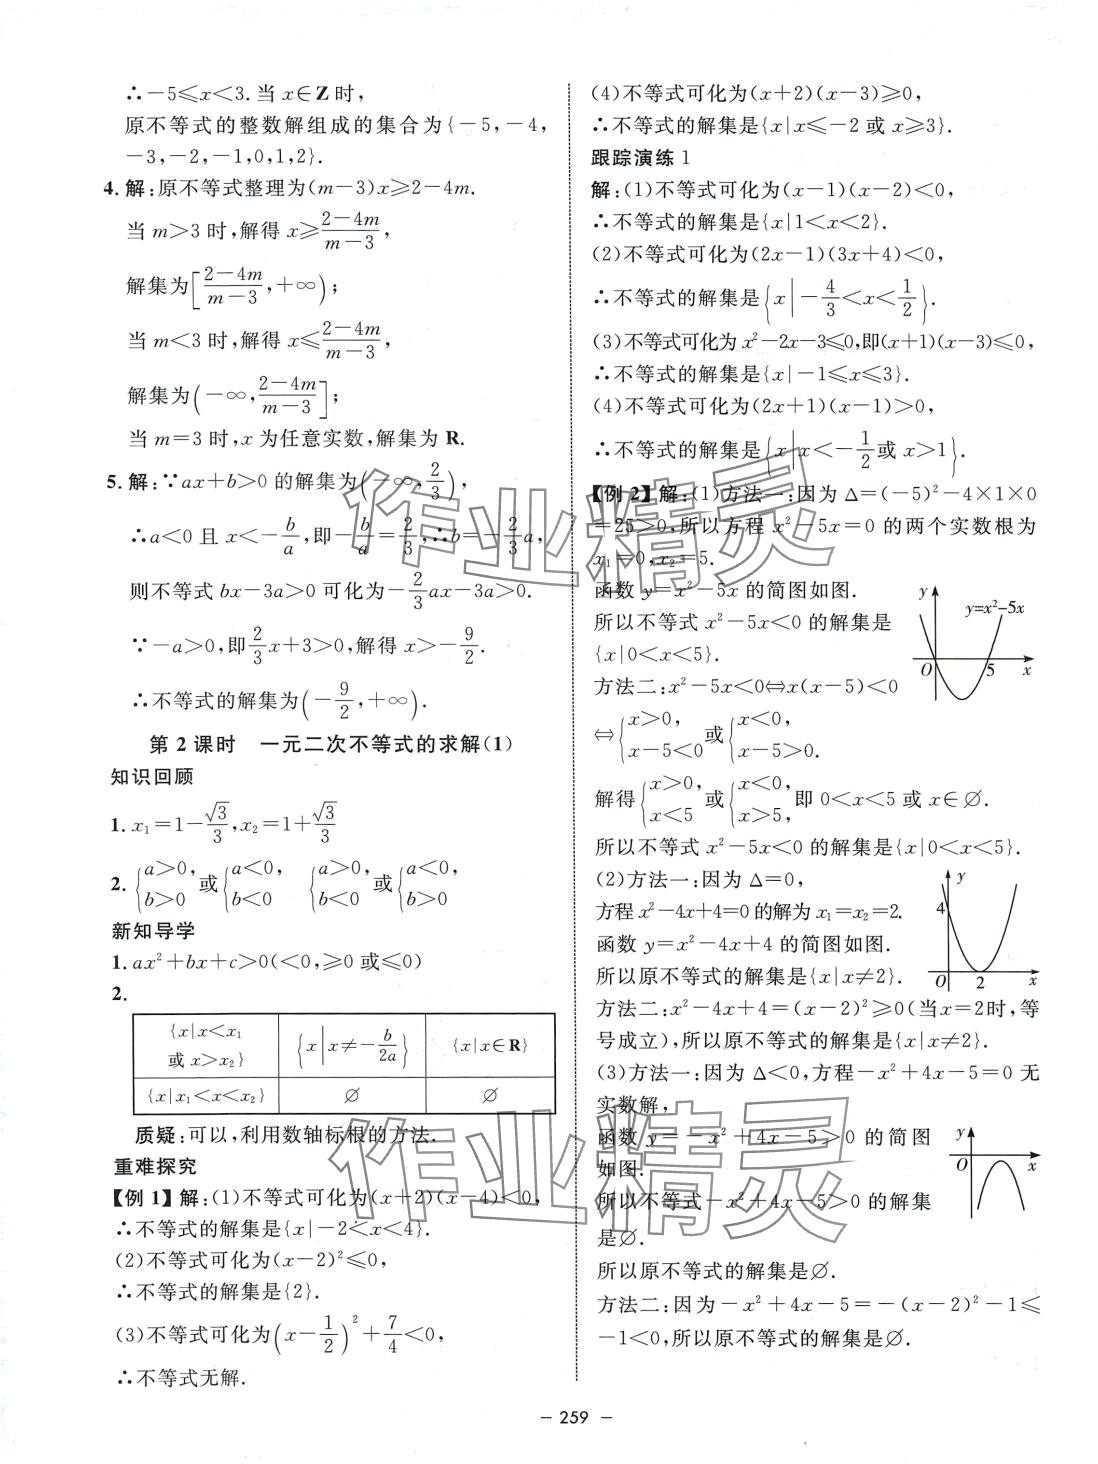 ∴-5≤x<3.当 x∈Z时,
原不等式的整数解组成的集合为{-5,-4,
-3,-2,-1,0,1,2}.
4.解:原不等式整理为(m-3)x≥2-4m.
当 m>3 时,解得 x≥(2-4m)/(m-3),
解集为[(2-4m)/(m-3),+∞);
当 m<3 时,解得 x≤(2-4m)/(m-3),
解集为(-∞,(2-4m)/(m-3)];
当 m=3 时,x 为任意实数,解集为 R.
5.解:∵ax+b>0 的解集为(-∞,2/3),
∴a<0 且 x<-b/a,即-b/a=2/3,∴b=-2/3a,
则不等式 bx-3a>0 可化为-2/3ax-3a>0.
∵-a>0,即2/3x+3>0,解得 x>-9/2.
∴不等式的解集为(-9/2,+∞).
第 2 课时 一元二次不等式的求解(1)
知识回顾
1.x₁=1-√3/3,x₂=1+√3/3
2.{a>0,b>0 或{a<0,b<0 {a>0,b<0 或{a<0,b>0
新知导学
1.ax²+bx+c>0(<0,≥0 或≤0)
2.
{x|x<x₁ 或 x>x₂} {x|x≠-b/2a} {x|x∈R}
{x|x₁<x<x₂} ∅ ∅
质疑:可以,利用数轴标根的方法.
重难探究
【例 1】解:(1)不等式可化为(x+2)(x-4)<0,
∴不等式的解集是{x|-2<x<4}.
(2)不等式可化为(x-2)²≤0,
∴不等式的解集是{2}.
(3)不等式可化为(x-1/2)²+7/4<0,
∴不等式无解.
(4)不等式可化为(x+2)(x-3)≥0,
∴不等式的解集是{x|x≤-2 或 x≥3}.
跟踪演练 1
解:(1)不等式可化为(x-1)(x-2)<0,
∴不等式的解集是{x|1<x<2}.
(2)不等式可化为(2x-1)(3x+4)<0,
∴不等式的解集是{x|-4/3<x<1/2}.
(3)不等式可化为 x²-2x-3≤0,即(x+1)(x-3)≤0,
∴不等式的解集是{x|-1≤x≤3}.
(4)不等式可化为(2x+1)(x-1)>0,
∴不等式的解集是{x|x<-1/2或 x>1}.
【例 2】解:(1)方法一:因为 Δ=(-5)²-4×1×0
=25>0,所以方程 x²-5x=0 的两个实数根为
x₁=0,x₂=5.
函数 y=x²-5x 的简图如图.
所以不等式 x²-5x<0 的解集是
{x|0<x<5}.
y
y=x²-5x
O 5 x
方法二:x²-5x<0⇔x(x-5)<0
⇔{x>0,x-5<0 或{x<0,x-5>0.
解得{x>0,x<5 或{x<0,x>5, 即 0<x<5 或 x∈∅.
所以不等式 x²-5x<0 的解集是{x|0<x<5}.
(2)方法一:因为 Δ=0,
方程 x²-4x+4=0 的解为 x₁=x₂=2.
函数 y=x²-4x+4 的简图如图.
所以原不等式的解集是{x|x≠2}.
y
4
O 2 x
方法二:x²-4x+4=(x-2)²≥0(当x=2时,等
号成立),所以原不等式的解集是{x|x≠2}.
(3)方法一:因为 Δ<0,方程-x²+4x-5=0 无
实数解,
函数 y=-x²+4x-5>0 的简图
如图.
所以不等式-x²+4x-5>0 的解集
是∅.
y
O x
所以原不等式的解集是∅.
方法二:因为-x²+4x-5=-(x-2)²-1≤
-1<0,所以原不等式的解集是∅.
- 259 -
作业精灵
作业精灵